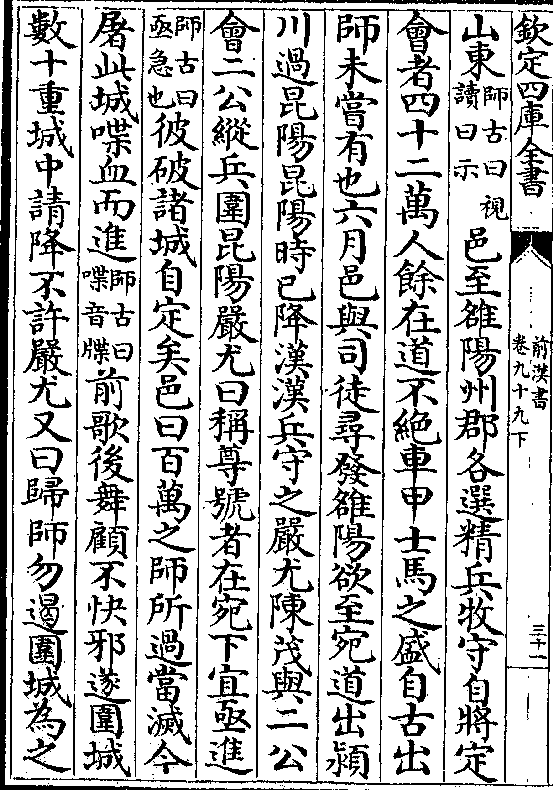 欽定四庫全書
前漢書
卷九十九下
三十一
山東師古曰視讀曰示邑至雒陽州郡各選精兵牧守自將定
會者四十二萬人餘在道不絶車甲士馬之盛自古出
師未嘗有也六月邑與司徒尋發雒陽欲至宛道出潁
川過昆陽昆陽時已降漢漢兵守之嚴尤陳茂與二公
會二公縱兵圍昆陽嚴尤曰稱尊號者在宛下宜亟進
師古曰亟急也彼破諸城自定矣邑曰百萬之師所過當滅今
屠此城喋血而進師古曰喋音牒前歌後舞顧不快邪遂圍城
數十重城中請降不許嚴尤又曰歸師勿遏圍城為之